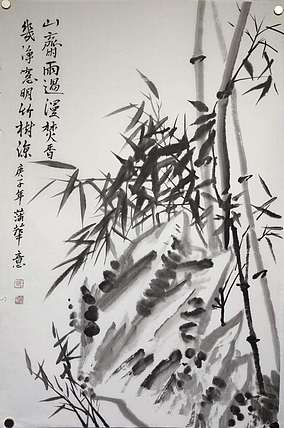 山齋雨過漫焚香
幾淨窗明竹樹涼 庚子年 蒲華意